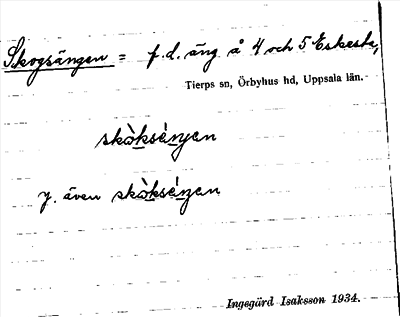 Skogsängen = f.d. äng å 4 och 5 Eskesta,
Tierps sn, Örbyhus hd, Uppsala län.
skò̀ksèŋen
y. även skò̀ksèŋen
Ingegärd Isaksson 1934.